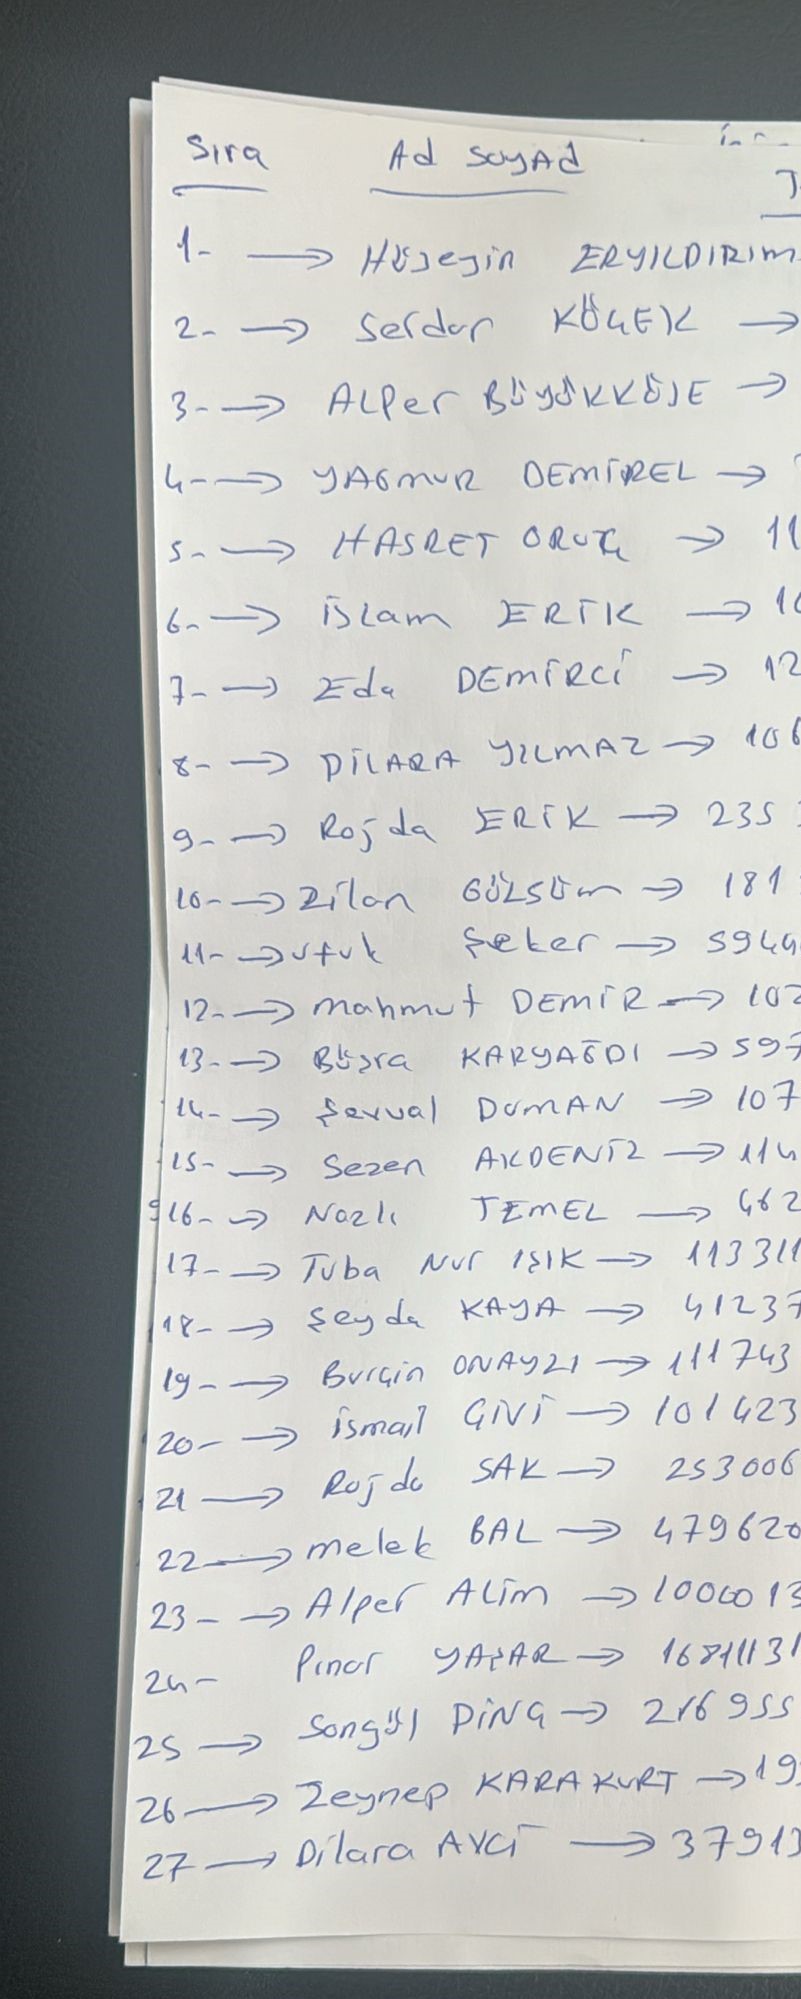 Sıra Ad soyAd
1- → Hüseyin ERYILDIRIM
2- → Serdar KÖÇEK →
3- → ALPer BÜYÜKKÖSE →
4- → YAGmUR DEMİREL →
5- → HASRET ORUÇ → 11
6- → İsLam ERİK → 10
7- → Eda DEMİRCİ → 12
8- → DİLARA YILMAZ → 106
9- → Rojda ERİK → 235
10- → Zilan GÜLSÜm → 181
11- → Ufuk Şeker → 5944
12- → mahmut DEMİR → 102
13- → Büşra KARYAĞDI → 597
14- → Şevval DUMAN → 107
15- → Sezen AKDENİZ → 114
16- → Nazlı TEMEL → 462
17- → Tuba Nur IŞIK → 113311
18- → Şeyda KAYA → 41237
19- → Burçin ONAYZI → 111743
20- → İsmail ÇİVİ → 101423
21 → Rojda SAK → 253006
22 → melek BAL → 479620
23- → Alper ALİm → 1000013
24- Pınar YAŞAR → 16811131
25 → Songül DİNÇ → 216955
26 → Zeynep KARAKURT → 19
27 → Dilara AVCİ → 37913